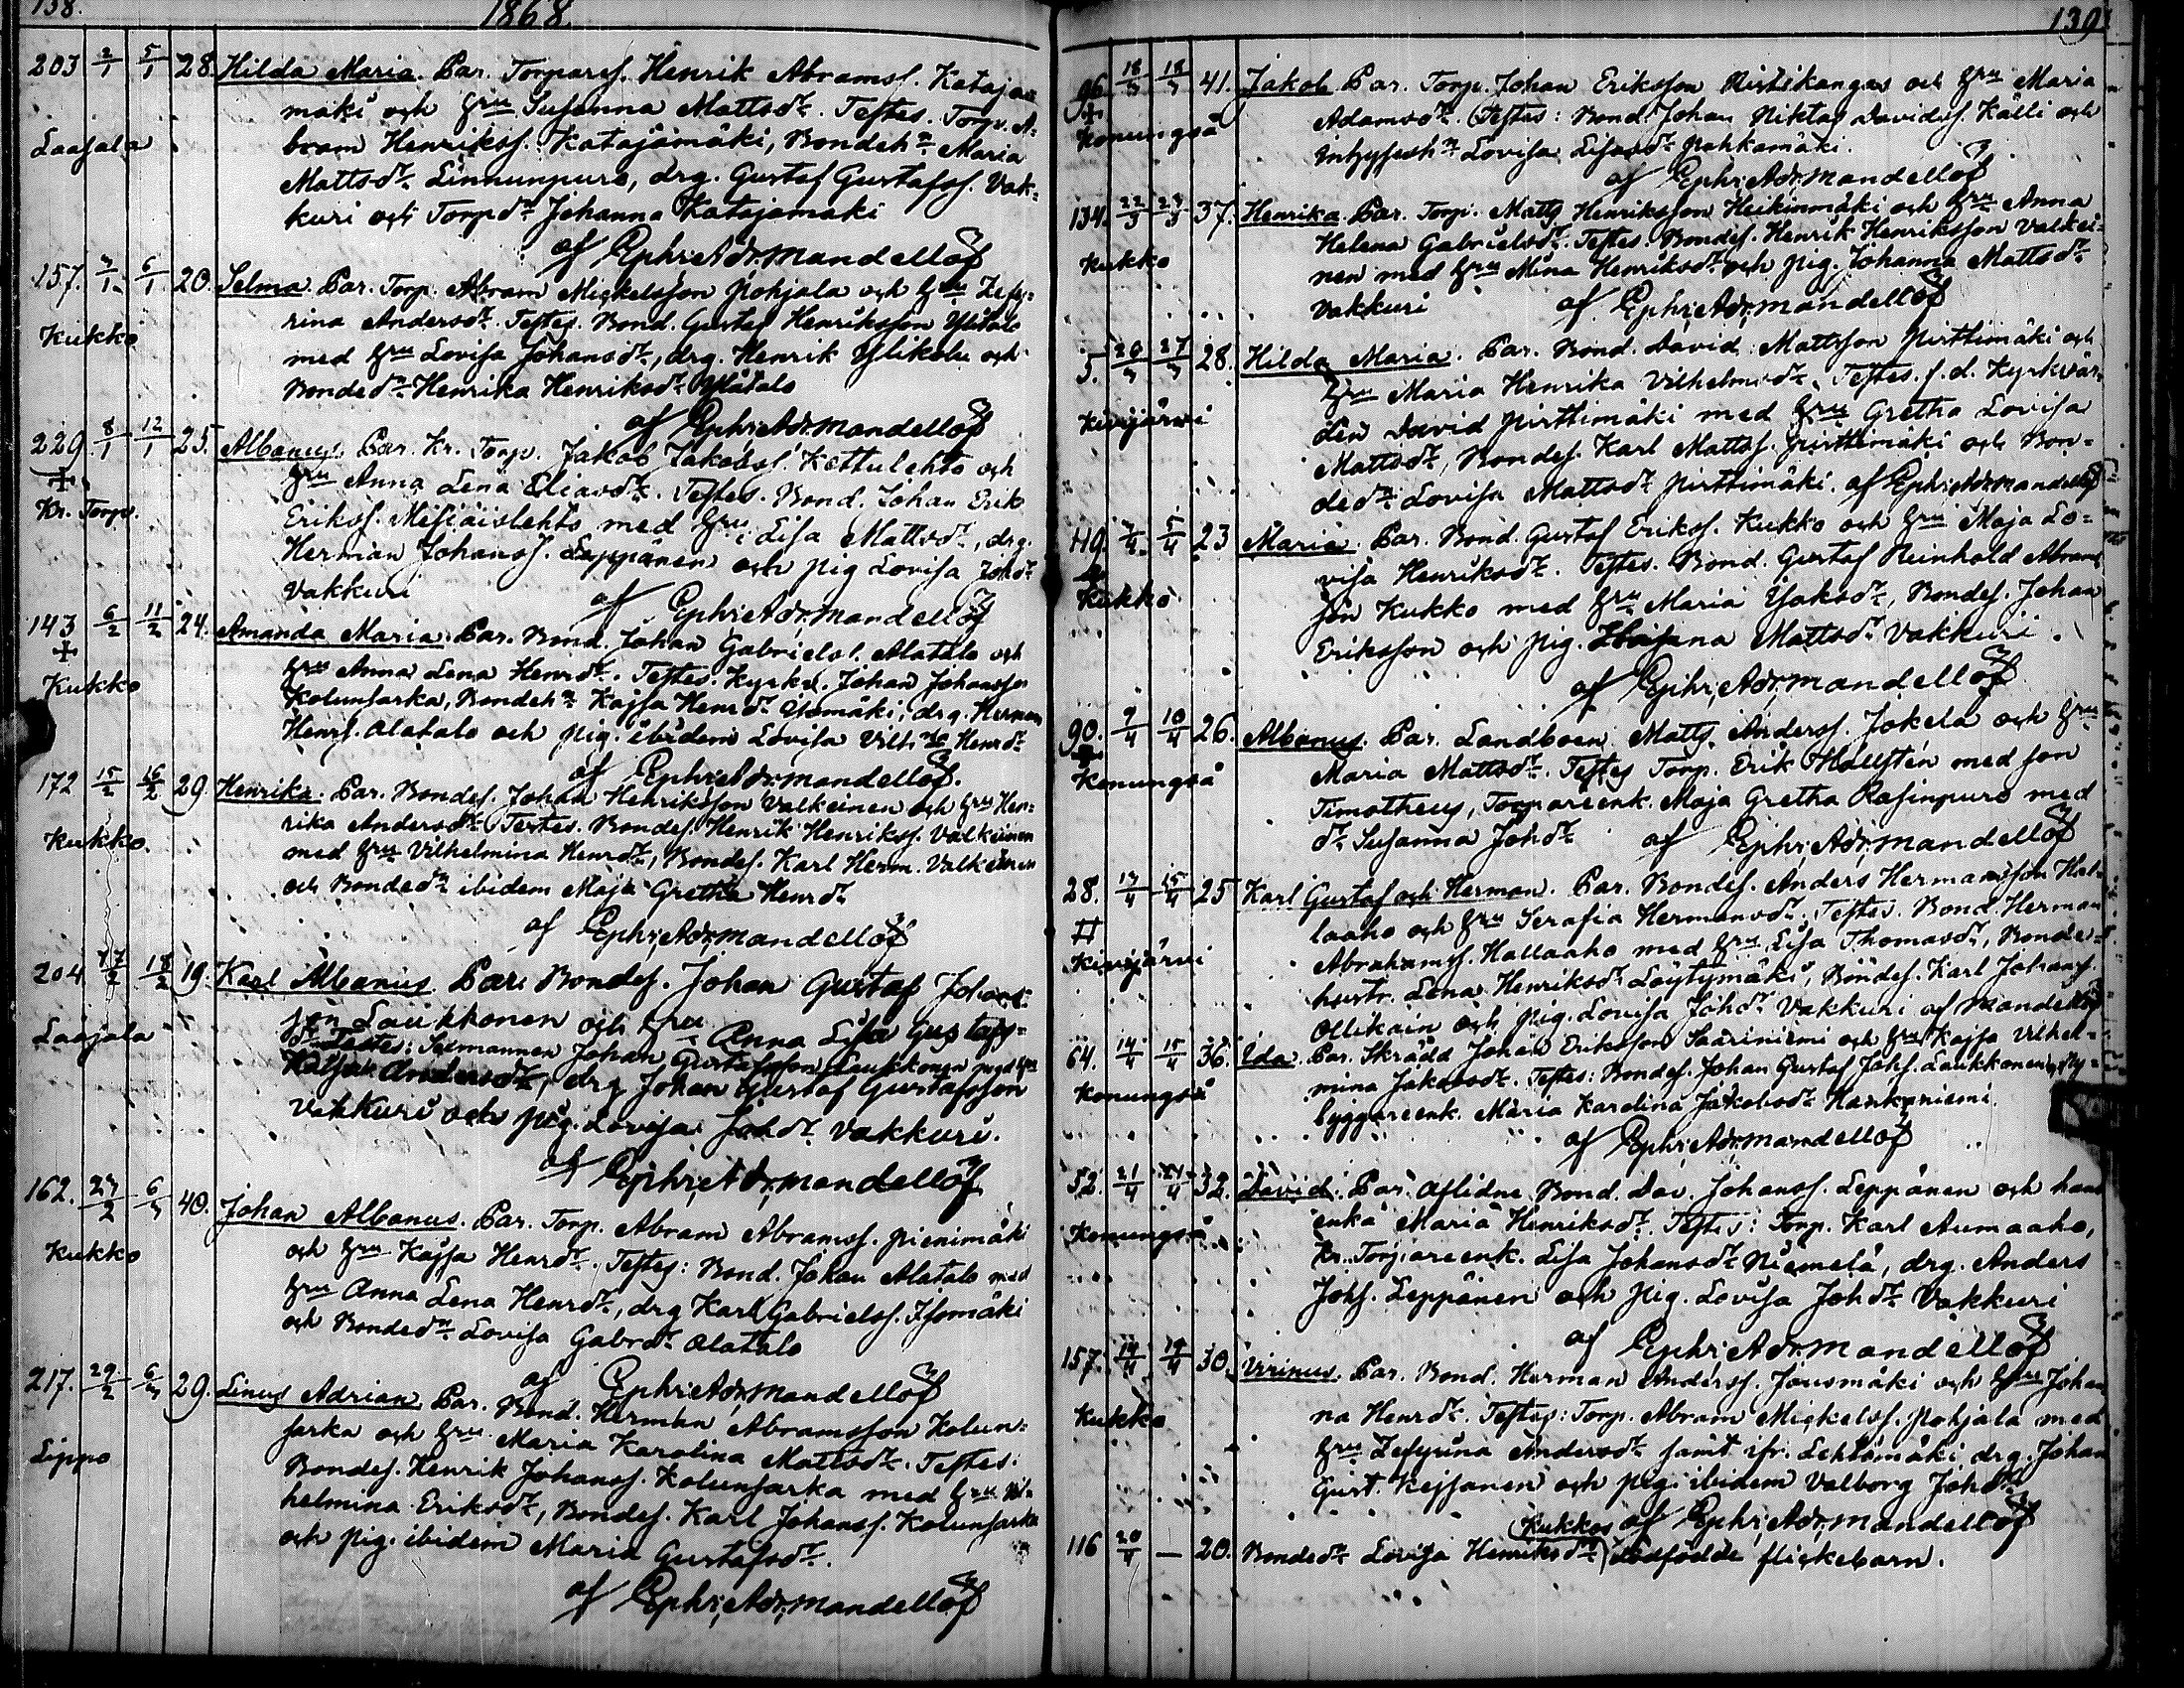 138.
1868.
203 2/1 5/1 28. Hilda Maria. Par. Torparef. Henrik Abramsf. Kataja=
mäki och hru Susanna Mattsdr. Testes. Torp. A=
Laajala
bram Henriksf. Katajamäki, Bondehn Maria
Mattsdr Linnunpuro, drg. Gustaf Gustafsf. Vak=
kuri och Torpdr Johanna Katajamäki
af Ephr. Adr. Mandellöf
157. 3/1 6/1 20. Selma. Par. Torp. Abram Mickelsson Pohjala och hru Zefy=
rina Andersdr. Testes. Bond. Gustaf Henriksson Ylitalo
Kukko
med hru Lovisa Johansdr, drg. Henrik Ylikolu och
Bondedr Henrika Henriksdr Ylitalo
af Ephr. Adr. Mandellöf
229. 8/1 12/1 25. Albanus. Par. Kr. Torp. Jakob Jakobsf. Kettulehto och
hru Anna Lena Eliasdr. Testes. Bond. Johan Erik
Kr. Torp.
Eriksf. Mesiäislehto med hru Lisa Mattsdr, drg.
Herman Johansf. Leppänen och pig Lovisa Johdr
Vakkuri
af Ephr. Adr. Mandellöf
143 6/2 11/2 24. Amanda Maria. Par. Bond. Johan Gabrielsf. Alatalo och
hru Anna Lena Henrdr. Testes. Kyrkv. Johan Johansson
Kukko
Kolunsarka, Bondehn Kajsa Henrdr Isomäki, drg. Herman
Henrf. Alatalo och pig. ibidem Lovisa Vilhna Henrdr
af Ephr. Adr. Mandellöf.
172 15/2 16/2 29. Henrika. Par. Bondef. Johan Henriksson Valkeinen och hru Hen=
rika Andersdr. Testes. Bondef. Henrik Henriksf. Valkeinen
Kukko.
med hru Vilhelmina Henrdr, Bondef. Karl Herm. Valkeinen
och Bondedr ibidem Maja Gretha Henrdr
af Ephr. Adr. Mandellöf
204 17/2 18/2 19. Karl Albanus. Par. Bondef. Johan Gustaf Johans=
son Laukkonen och hru Anna Lisa Gustafs=
Laajala
dr Testes: Sexmannen Johan Gustafsson Laukkonen med hru
Kajsa Andersdr, drg Johan Gustaf Gustafsson
Vakkuri och pig. Lovisa Johdr Vakkuri.
af Ephr. Adr. Mandellöf
162. 27/2 6/3 40. Johan Albanus. Par. Torp. Abram Abramsf. Pienimäki
och hru Kajsa Henrdr. Testes: Bond. Johan Alatalo med
Kukko
hru Anna Lena Henrdr, drg Karl Gabrielsf. Isomäki
och Bondedr Lovisa Gabrdr Alatalo
af Ephr. Adr. Mandellöf
217. 29/2 6/3 29. Linus Adrian. Par. Bond. Herman Abramsson Kolun=
sarka och hru Maria Karolina Mattsdr. Testes:
Lippo
Bondef. Henrik Johansf. Kolunsarka med hru Vil=
helmina Eriksdr, Bondef. Karl Johansf. Kolunsarka
och pig. ibidem Maria Gustafsdr.
af Ephr. Adr. Mandellöf
139
96. 18/3 18/3 41. Jakob. Par. Torp. Johan Eriksson Ristikangas och hru Maria
Konungså
Adamsdr. Testes: Bond. Johan Niktas Davidsf. Källi och
Inhyseshn Lovisa Lisasdr Pahkamäki.
af Ephr. Adr. Mandellöf
134. 22/3 23/3 37. Henrika. Par. Torp. Matts Henriksson Heikinmäki och hru Anna
Helena Gabrielsdr. Testes. Bondef. Henrik Henriksson Valkei=
Kukko
nen med hru Mina Henriksdr och pig. Johanna Mattsdr
Vakkuri
af Ephr. Adr. Mandellöf
5. 20/3 27/3 28. Hilda Maria. Par. Bond. David Mattsson Pirttimäki och
hru Maria Henrika Vilhelmsdr. Testes. f.d. Kyrkvär=
Kivijärvi
den David Pirttimäki med hru Gretha Lovisa
Mattsdr, Bondef. Karl Mattsf. Pirttimäki och Bon=
dedr Lovisa Mattsdr Pirttimäki. af Ephr. Adr. Mandellöf
119. 3/4 5/4 23 Maria. Par. Bond. Gustaf Eriksf. Kukko och hru Maja Lo=
visa Henriksdr. Testes. Bond. Gustaf Reinhold Abrams=
Kukko
son Kukko med hru Maria Isaksdr, Bondef. Johan
Eriksson och pig. Mattsdr Vakkuri.
af Ephr. Adr. Mandellöf
90. 9/4 10/4 26. Albanus. Par. Landboen Matts Andersf. Jokela och hru
Konungså
Maria Mattsdr. Testes Torp. Erik Hallstén med son
Timotheus, Torpareenk. Maja Gretha Rasinpuro med
dr Susanna Johdr
af Ephr. Adr. Mandellöf
28. 13/4 15/4 25 Karl Gustaf och Herman. Par. Bondef. Anders Hermansson Hal=
laaho och hru Serafia Hermansdr. Testes. Bond. Herman
Kivijärvi
Abrahamsf. Hallaaho med hru Lisa Thomasdr, Bonde=
hustr. Lena Henriksdr Löytymäki, Bondef. Karl Johansf.
Ollikain och pig. Lovisa Johdr Vakkuri af Mandellöf
64. 14/4 15/4 36. Ida. Par. Skrädd Johan Eriksson Saariniemi och hru Kajsa Vilhel=
Konungså
mina Jakobsdr. Testes: Bondef. Johan Gustaf Johsf. Laukkonen, Ny=
byggareenk. Maria Karolina Jakobsdr Hankaniemi.
af Ephr. Adr. Mandellöf
52. 21/4 21/4 32. David. Par. Aflidne Bond. Dav. Johansf. Leppänen och hans
Konungså
enka Maria Henriksdr. Testes: Torp. Karl Aumaaho,
Kr. Torpareenk. Lisa Johansdr Niemelä, drg. Anders
Johsf. Leppänen och pig. Lovisa Johdr Vakkuri
af Ephr. Adr. Mandellöf
157. 14/4 19/4 30. Virinus. Par. Bond. Herman Andersf. Jousmäki och hru Johan
Kukko
na Henrdr. Testes: Torp. Abram Mickelsf. Pohjala med
hru Zefyrina Andersdr samt ifr. Lehtomäki drg. Johan
Gust. Kejsanen och pig. ibidem Valborg Johdr
af Ephr. Adr. Mandellöf
Kukkos
116 20/4 — 20. Bondedr Lovisa Henriksdr dödfödde flickebarn.